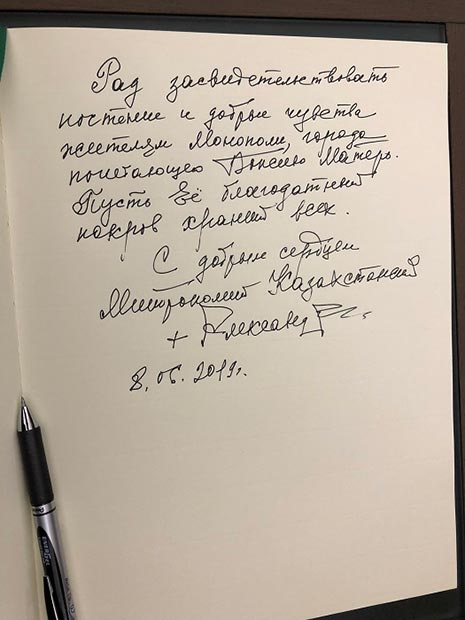 Рад засвидетельствовать
почтение и добрые чувства
жителям Монополи, города
почитающего Божию Матерь.
Пусть Её благодатный
покров хранит всех.
С добрым сердцем
Митрополит Казахстанский
+ Александр
8.06.2019г.